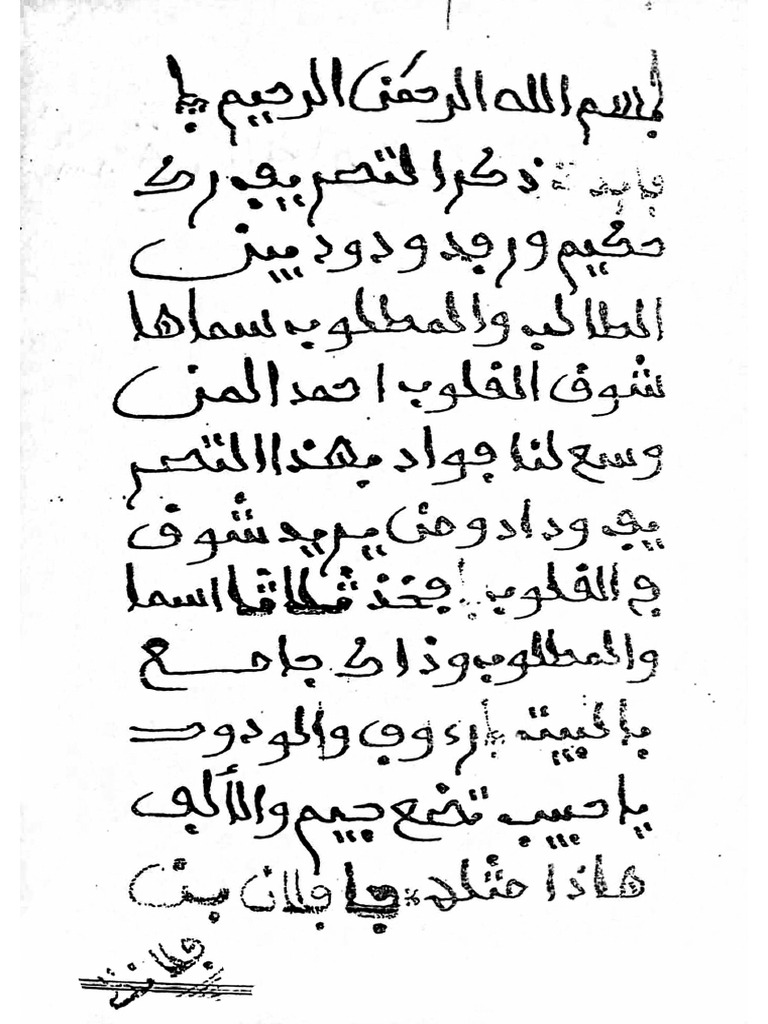 بسم الله الرحمن الرحيم يا
فايدة ذكر التصريف رك
حكيم ورفد ودود بين
الطالب والمطلوب سماها
شوق القلوب احمد المن
وسع لنا جواد بهذا التصر
يف وداد ومن يريد شوق
ج القلوب فخذ اسما
والمطلوب وذاك جامع
بالبيت يارءوف والودود
يا حبيب تضع جيم والألف
هاذا مثله جا فلان بن
فلانة